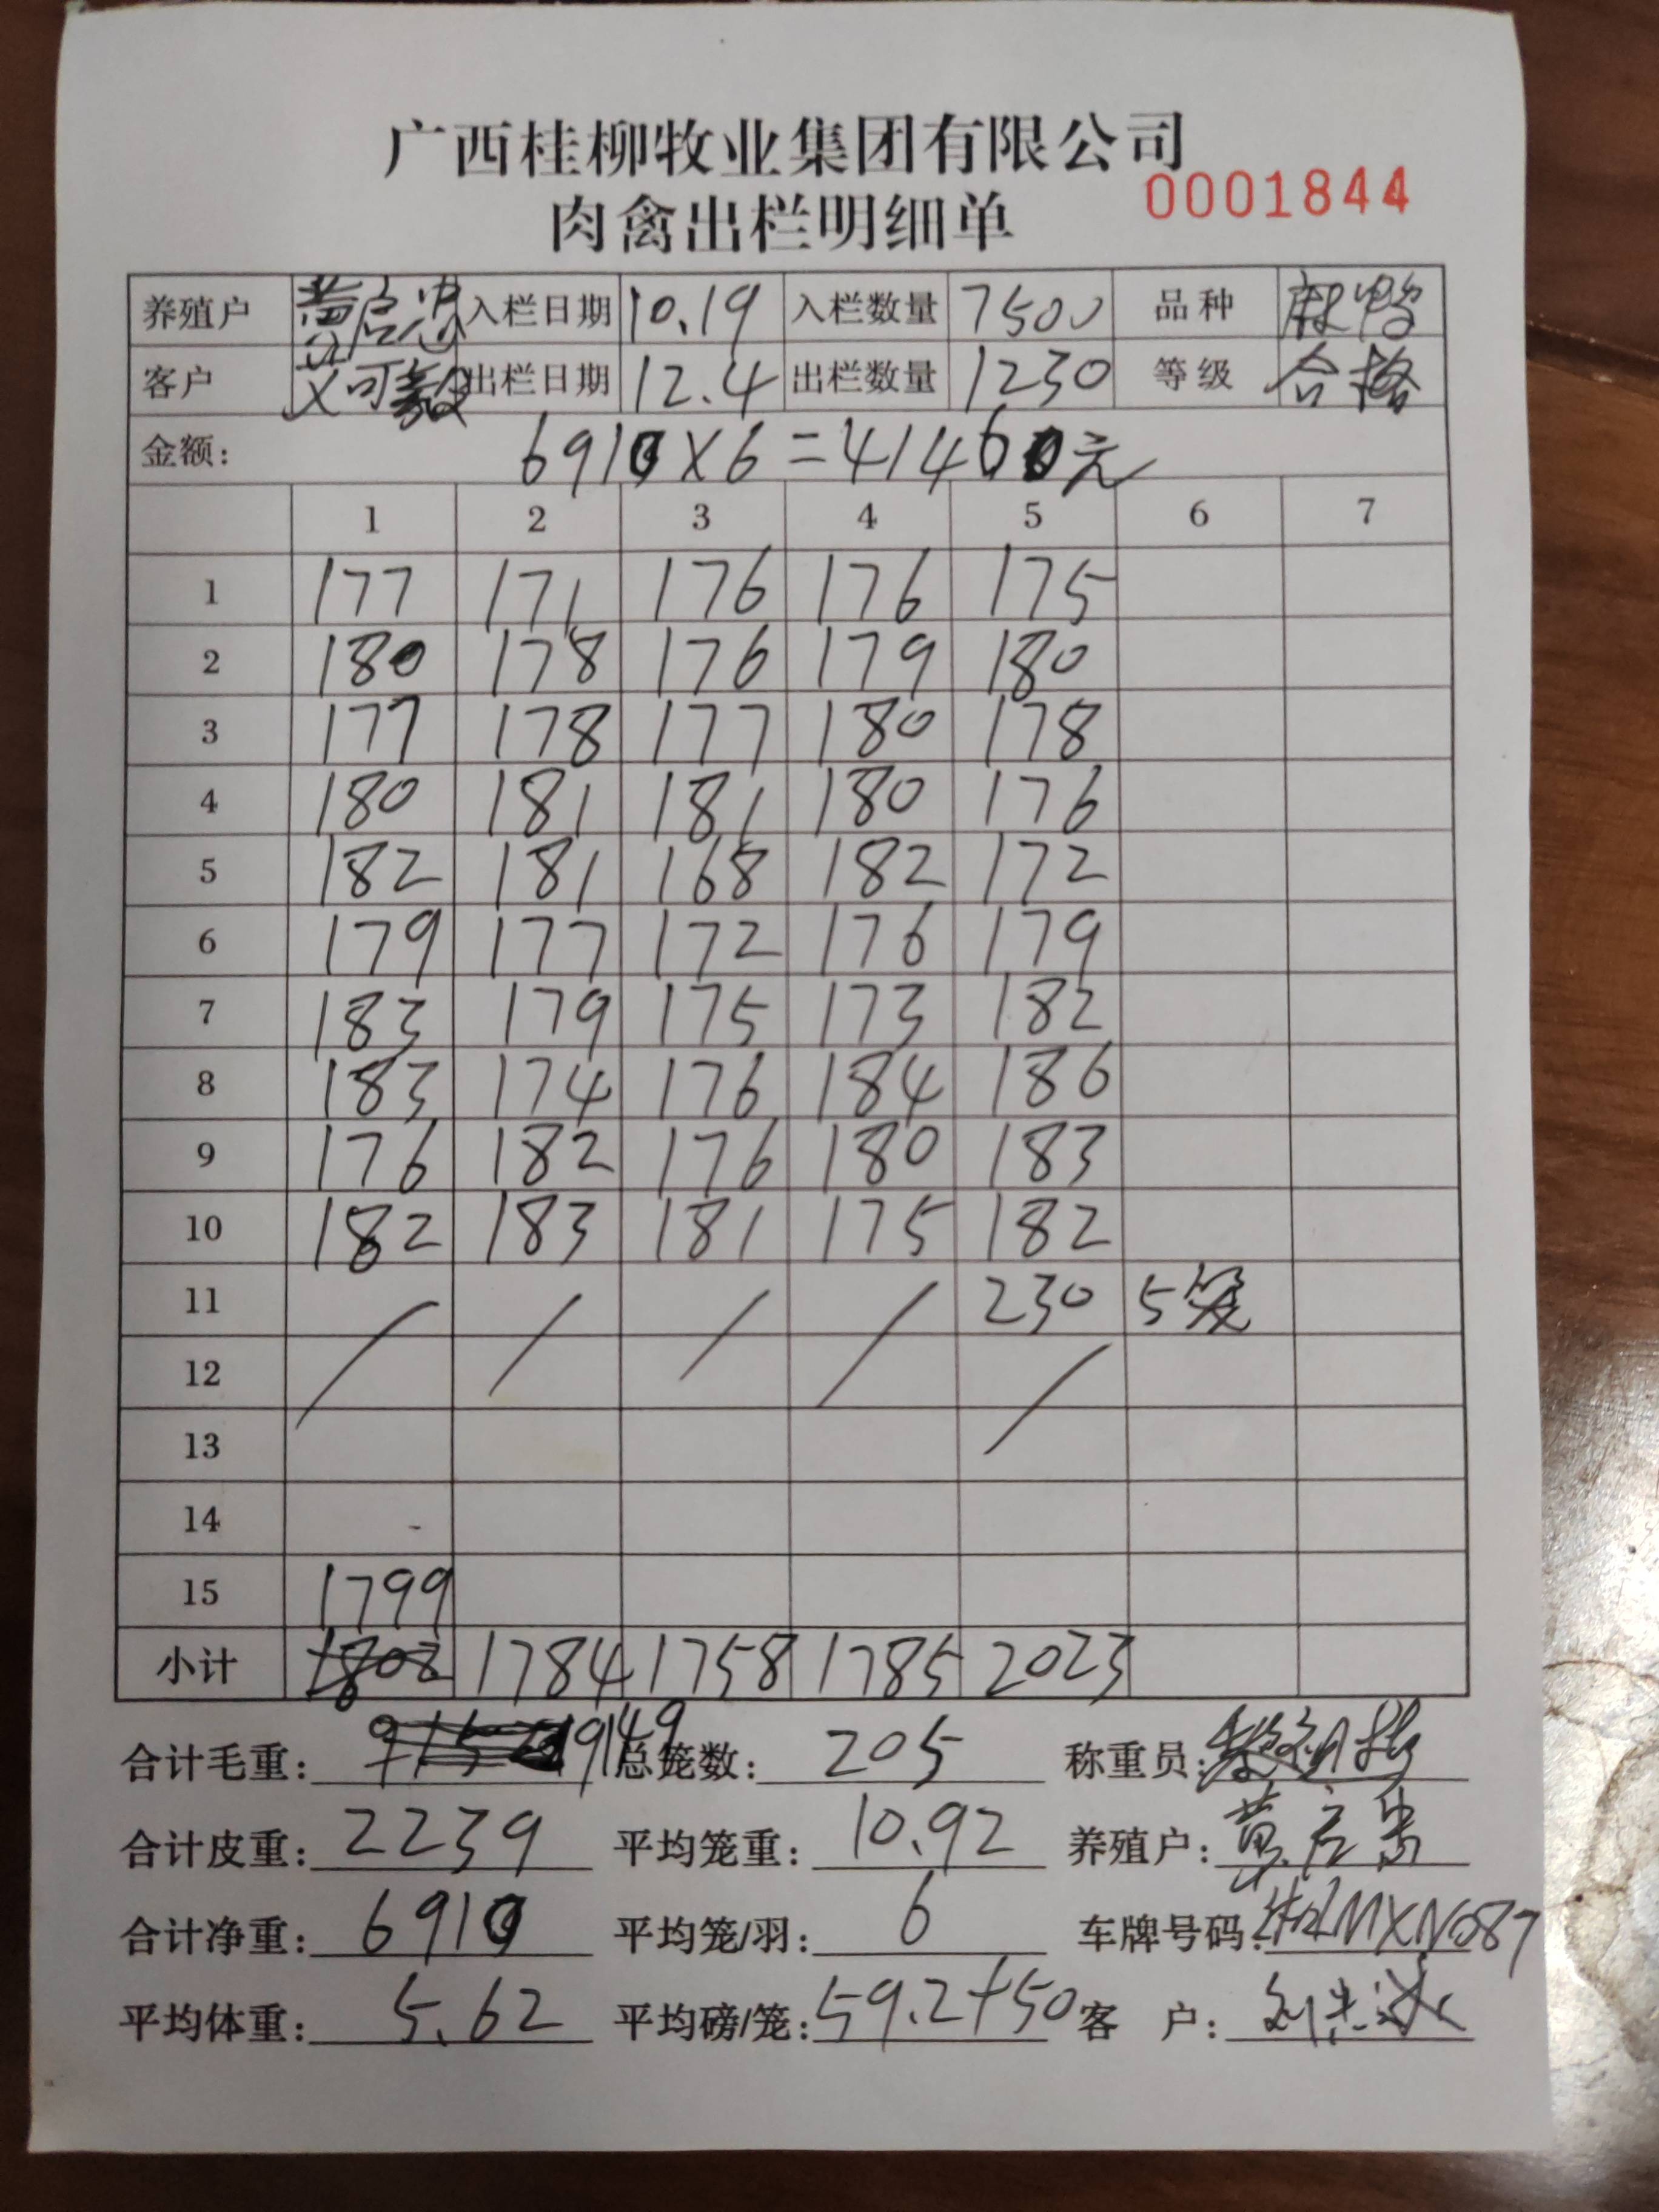 广西桂柳牧业集团有限公司
肉禽出栏明细单 0001844
养殖户 黄启忠 入栏日期 10.19 入栏数量 7500 品种 麻鸭
客户 艾可毅 出栏日期 12.4 出栏数量 1230 等级 合格
金额: 6910X6=41460元
1 2 3 4 5 6 7
1 177 171 176 176 175
2 180 178 176 179 180
3 177 178 177 180 178
4 180 181 181 180 176
5 182 181 168 182 172
6 179 177 172 176 179
7 183 179 175 173 182
8 183 174 176 184 186
9 176 182 176 180 183
10 182 183 181 175 182
11 230 5笼
12
13
14
15 1799
小计 1802 1784 1758 1785 2023
合计毛重: 9149 总笼数: 205 称重员:
合计皮重: 2239 平均笼重: 10.92 养殖户: 黄启忠
合计净重: 6910 平均笼/羽: 6 车牌号码:
平均体重: 5.62 平均磅/笼: 59.2+50 客 户: